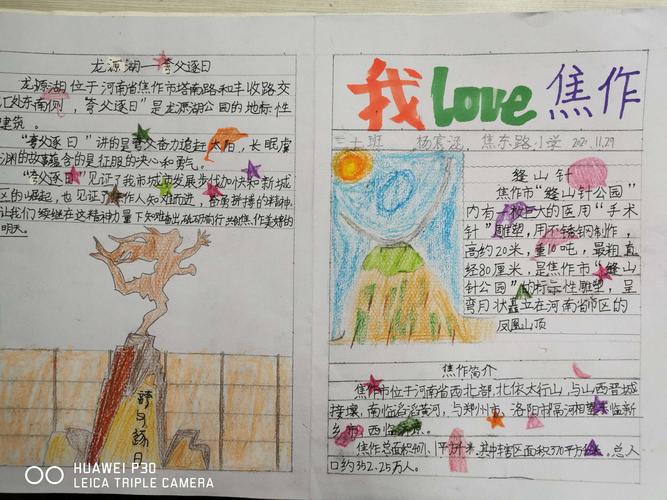 龙源湖——夸父逐日
龙源湖位于河南省焦作市塔南路和丰收路交
汇处东南侧，“夸父逐日”是龙源湖公园的地标性
建筑。
“夸父逐日”讲的是夸父奋力追赶太阳，长眠虞
渊的故事蕴含的是征服的决心和勇气。
“夸父逐日”见证了我市城市发展步伐加快和新城
区的崛起，也见证了焦作人知难而进、奋勇拼搏的精神，
让我们继续在这精神力量下
明天。
夸父逐日
HUAWEI P30
LEICA TRIPLE CAMERA
我Love焦作
三十班 杨宸涵 焦东路小学 2021.11.29
缝山针
焦作市“缝山针公园”
内有一枚巨大的医用“手术
针”雕塑，用不锈钢制作，
高约20米，重10吨，最粗直
经80厘米，是焦作市“缝山
针公园”的标示性雕塑，呈
弯月状矗立在河南省市区的
凤凰山顶
焦作简介
焦作市位于河南省西北部，北依太行山，与山西晋城
接壤，南临滔滔黄河，与郑州市、洛阳市隔河相望，东临新
乡市，西临
焦作总面积4071平方千米，其中辖区面积570平方千米，总人
口约352.25万人。